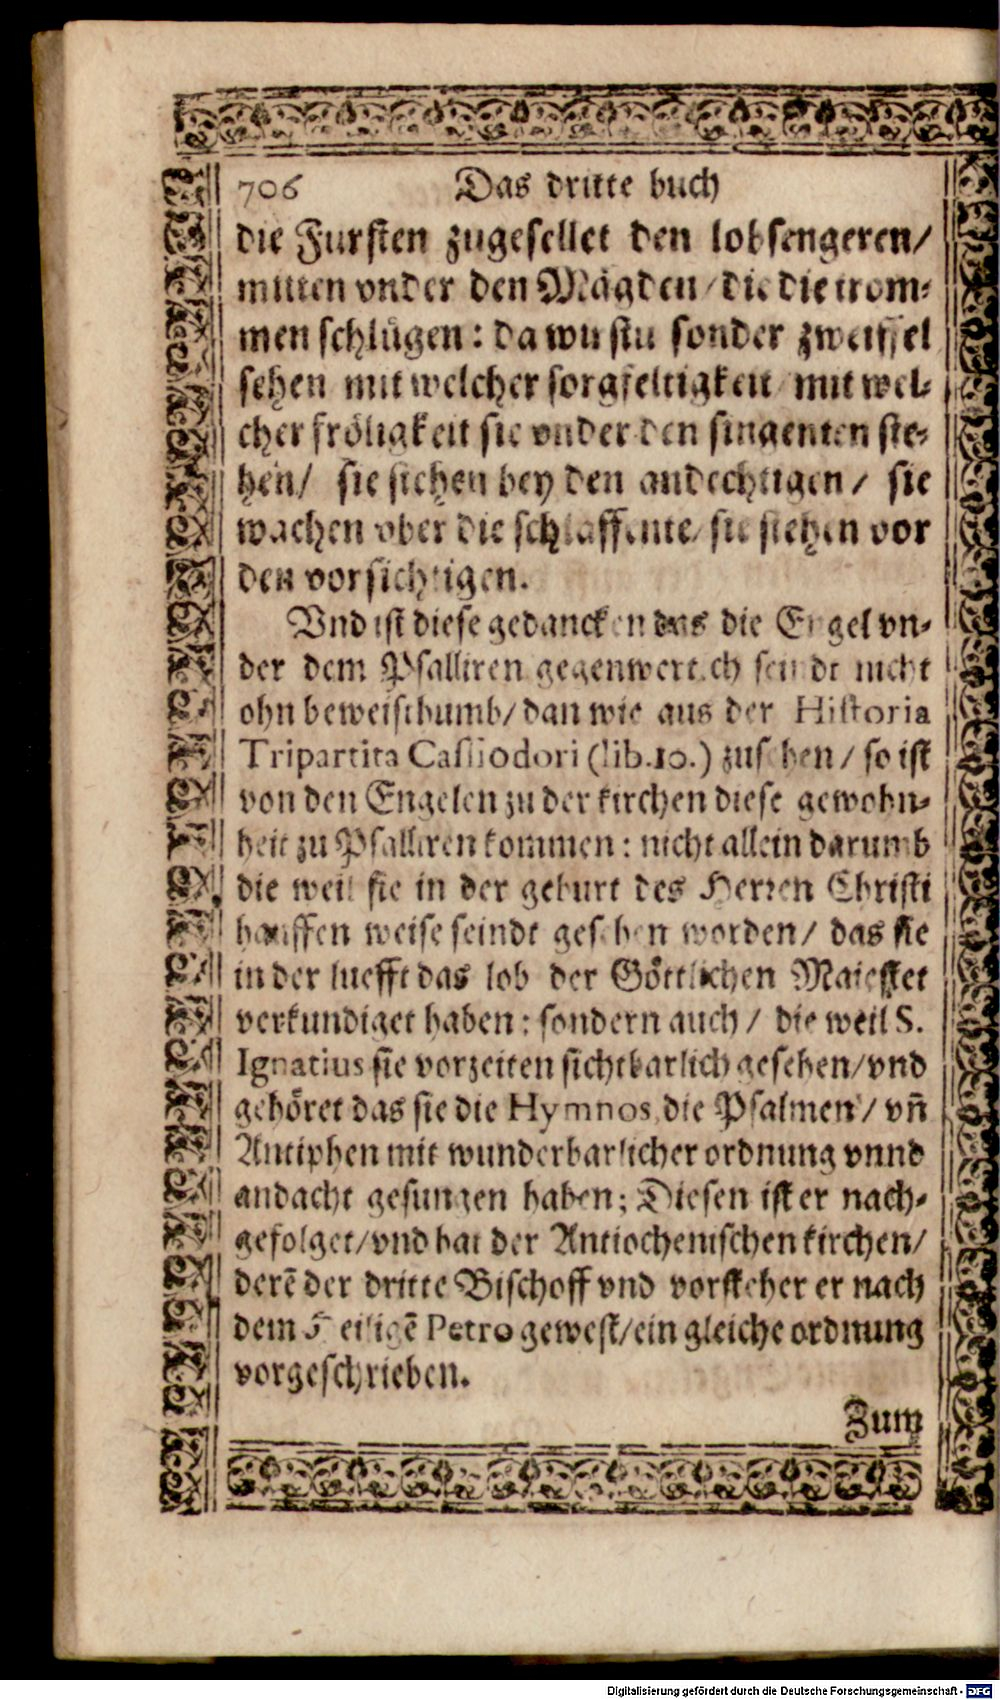 706 Das dritte buch
die Fursten zugesellet den lobsengeren/
mitten vnder den Mägden/ die die trom⸗
men schlügen: da wirstu sonder zweiffel
sehen mit welcher sorgfeltigkeit/ mit wel⸗
cher fröligkeit sie vnder den singenten ste⸗
hen/ sie stehen bey den andechtigen/ sie
wachen vber die schlaffente/ sie stehen vor
den vorsichtigen.
Vnd ist diese gedancken das die Engel vn⸗
der dem Psalliren gegenwertich seindt nicht
ohn beweisthumb/ dan wie aus der Historia
Tripartita Cassiodori (lib.10.) zusehen/ so ist
von den Engelen zu der kirchen diese gewohn⸗
heit zu Psalliren kommen: nicht allein darumb
die weil sie in der geburt des Herren Christi
hauffen weise seindt gesehen worden/ das sie
in der luefft das lob der Göttlichen Maiestet
verkundiget haben: sondern auch/ die weil S.
Ignatius sie vorzeiten sichtbarlich gesehen/ vnd
gehöret das sie die Hymnos, die Psalmen/ vñ
Antiphen mit wunderbarlicher ordnung vnnd
andacht gesungen haben; Diesen ist er nach⸗
gefolget/ vnd hat der Antiochenischen kirchen/
derē der dritte Bischoff vnd vorsteher er nach
dem Heiligē Petro gewest/ ein gleiche ordnung
vorgeschrieben.
Zum
Digitalisierung gefördert durch die Deutsche Forschungsgemeinschaft - DFG